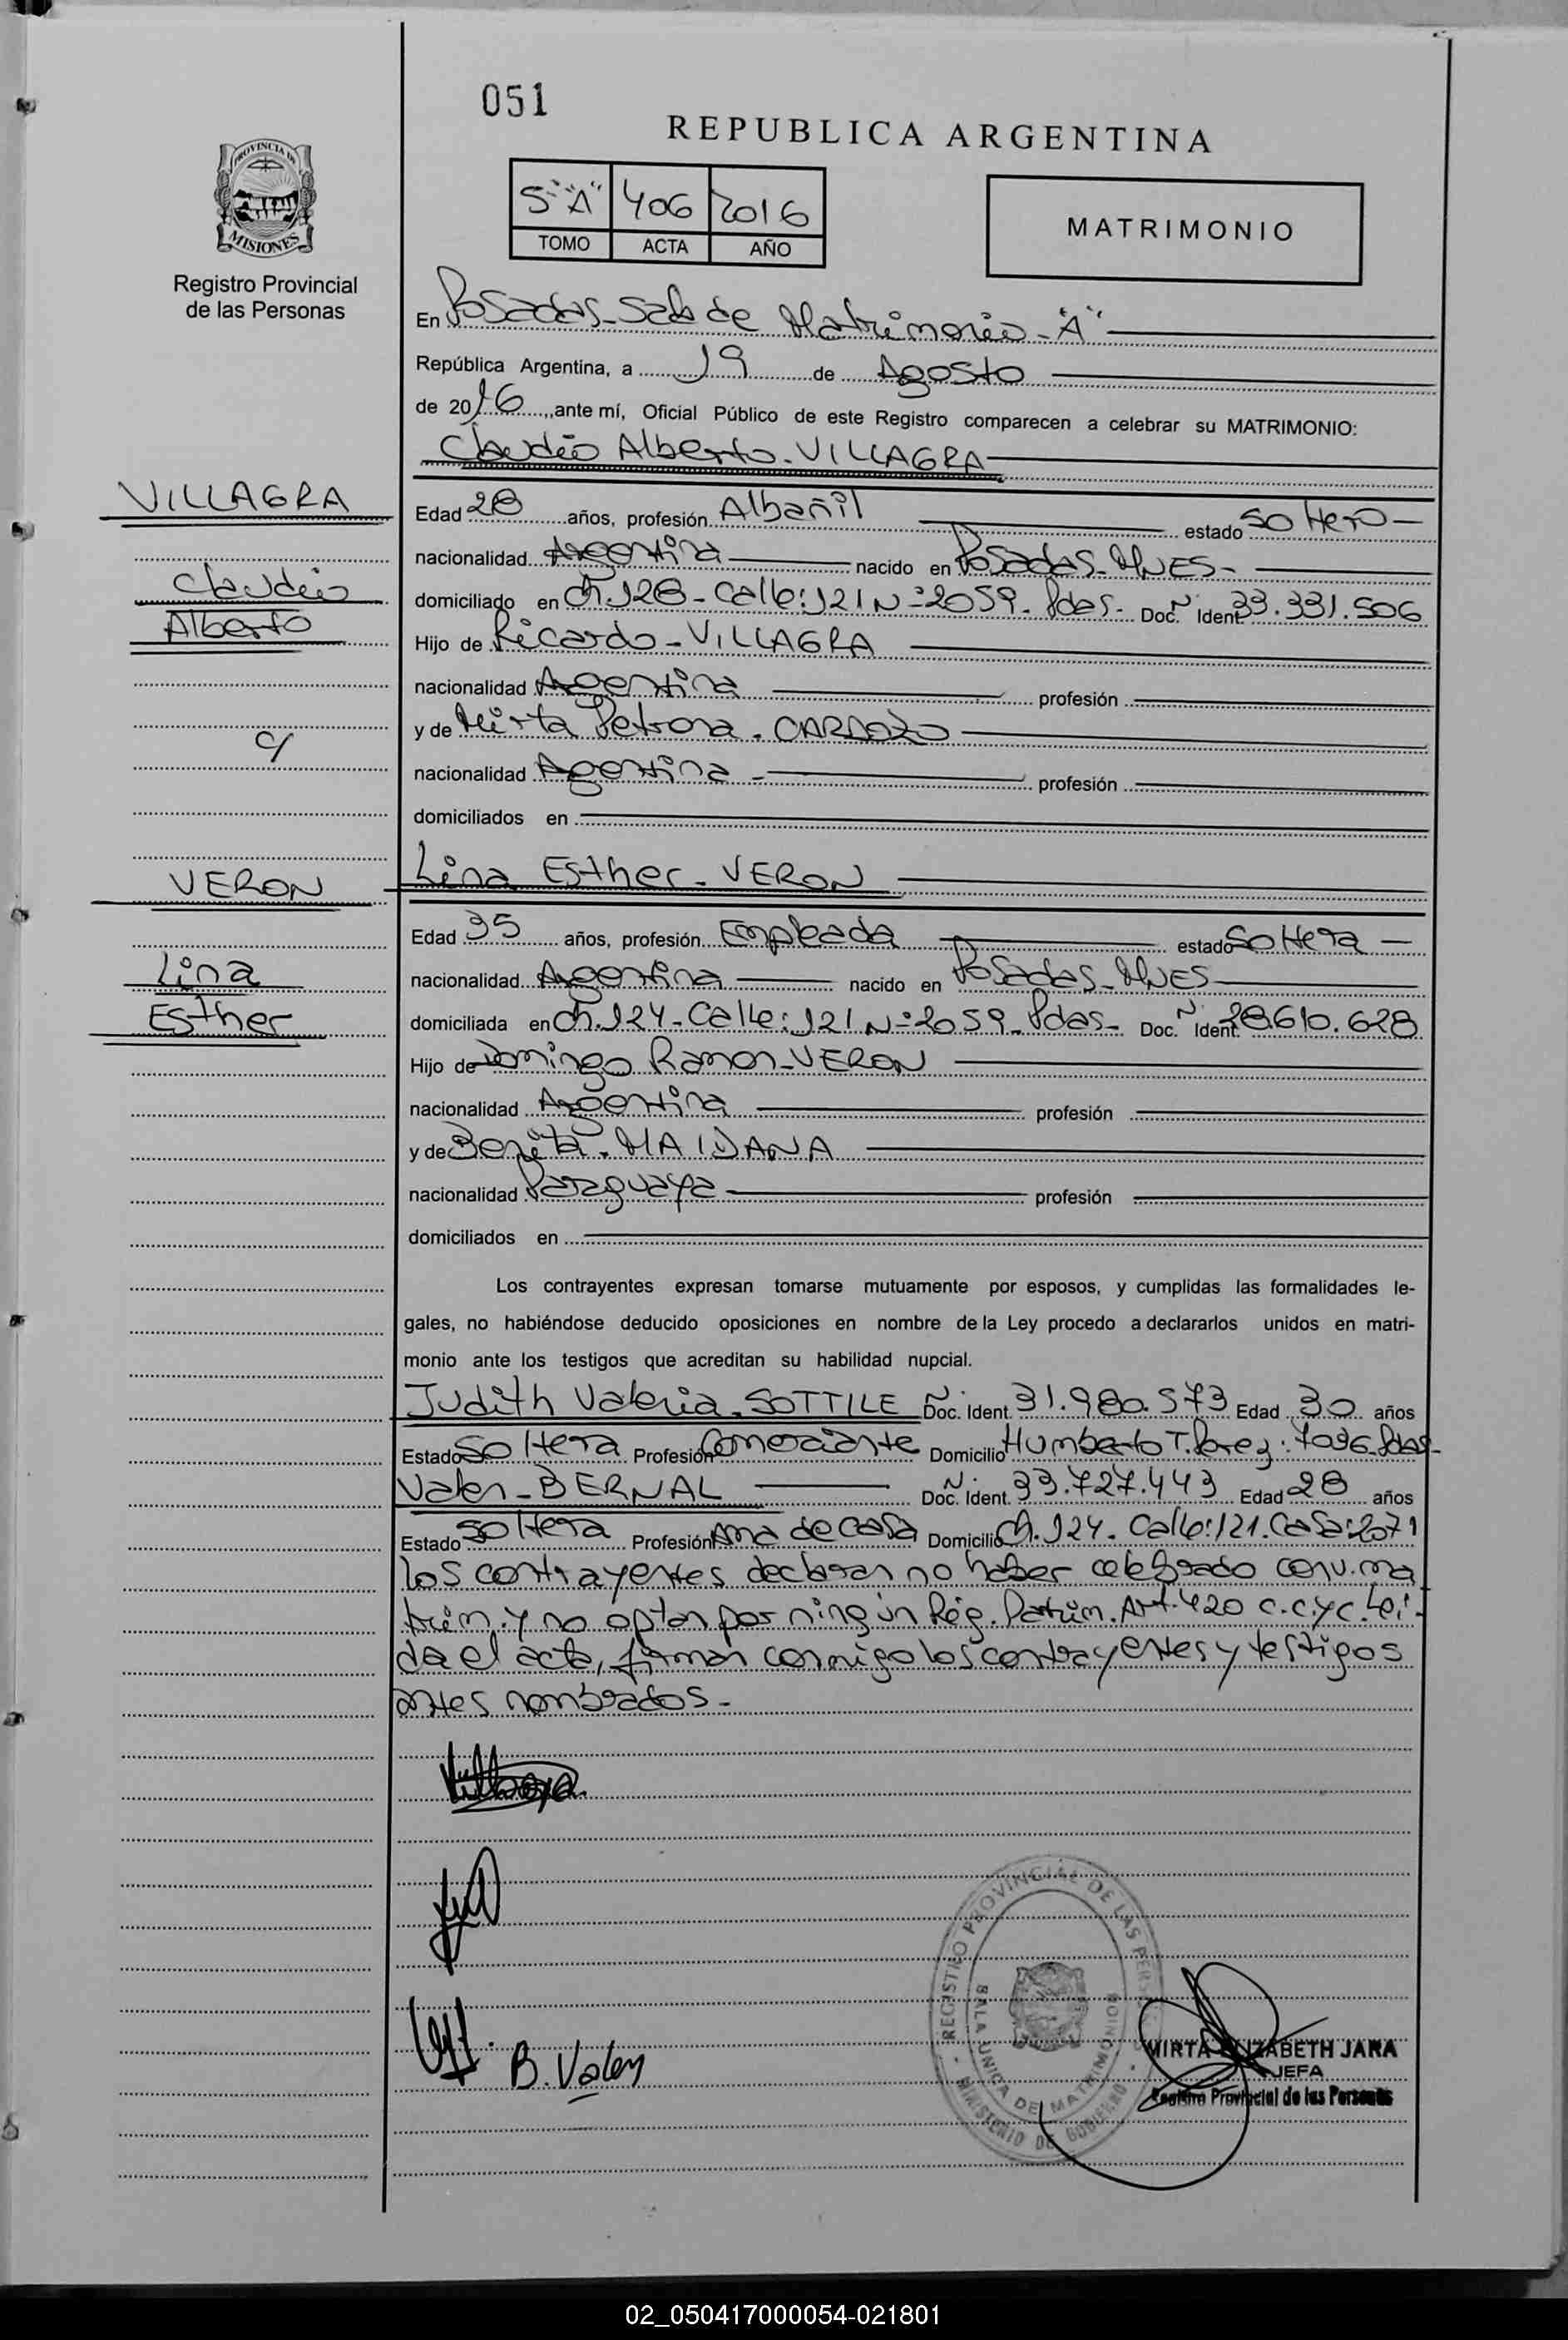 051
REPUBLICA ARGENTINA
PROVINCIA DE
MISIONES
Registro Provincial
de las Personas
5º "A" 406 2016
TOMO ACTA AÑO
MATRIMONIO
En Posadas-Sala de Matrimonio-"A"
República Argentina, a 19 de Agosto
de 2016, ante mí, Oficial Público de este Registro comparecen a celebrar su MATRIMONIO:
Claudio Alberto-VILLAGRA
VILLAGRA
Claudio
Alberto
c/
VERON
Lina
Esther
Edad 28 años, profesión Albañil estado soltero-
nacionalidad Argentina nacido en Posadas-Mnes-
domiciliado en Ch.128-Calle:121 Nº2059-Pdas- Doc. Nº Ident. 33.331.506
Hijo de Ricardo-VILLAGRA
nacionalidad Argentina profesión
y de Mirta Petrona.CARDOZO
nacionalidad Argentina- profesión
domiciliados en
Lina Esther-VERON
Edad 35 años, profesión Empleada estado soltera-
nacionalidad Argentina nacido en Posadas-Mnes
domiciliada en Ch.124-Calle:121 Nº2059-Pdas- Doc. Nº Ident. 28.610.628
Hijo de Domingo Ramon-VERON
nacionalidad Argentina profesión
y de Benita.MAIDANA
nacionalidad Paraguaya profesión
domiciliados en
Los contrayentes expresan tomarse mutuamente por esposos, y cumplidas las formalidades le-
gales, no habiéndose deducido oposiciones en nombre de la Ley procedo a declararlos unidos en matri-
monio ante los testigos que acreditan su habilidad nupcial.
Judith Valeria.SOTTILE Doc. Nº Ident. 31.980.573 Edad 30 años
Estado soltera Profesión Comerciante Domicilio Humberto T. Perez:7096-Pdas-
Valen-BERNAL Doc. Nº Ident. 33.727.443 Edad 28 años
Estado soltera Profesión Ama de casa Domicilio Ch.124.Calle:121.Casa:2071
los contrayentes declaran no haber celebrado conv.ma
trim.y no optan por ningún Rég.Patrim.Art.420 c.c.yc.Lei-
da el acta, firman conmigo los contrayentes y testigos
antes nombrados-
B. Valen
REGISTRO PROVINCIAL DE LAS PERS
SALA UNICA DE MATRIMONIO
MINISTERIO DE GOBIERNO
MIRTA ELIZABETH JARA
JEFA
Registro Provincial de las Personas
02_050417000054-021801